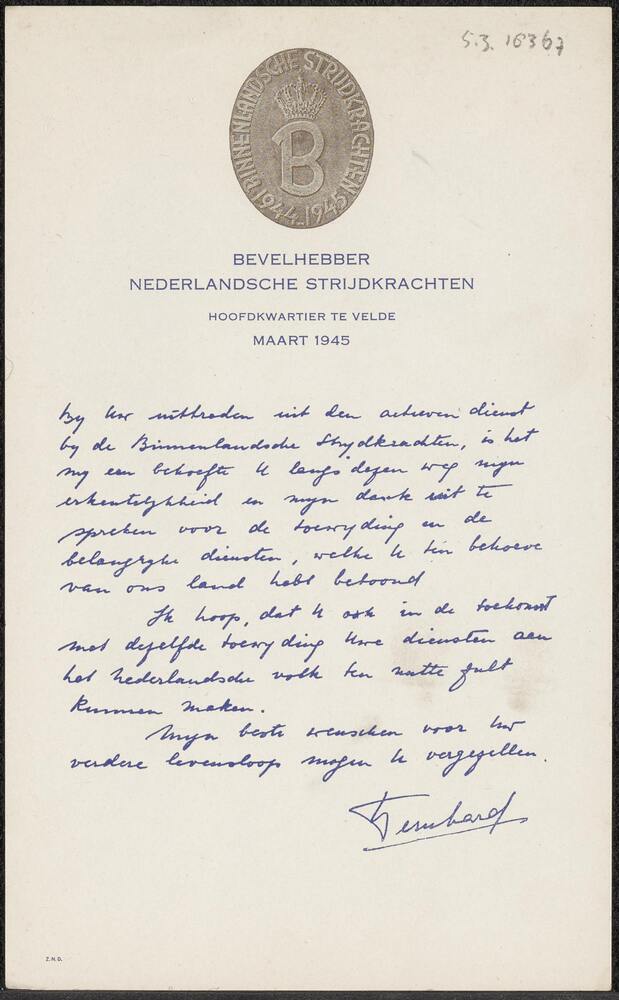 5.3. 16367
BINNENLANDSCHE STRIJDKRACHTEN
B
1944-1945
BEVELHEBBER
NEDERLANDSCHE STRIJDKRACHTEN
HOOFDKWARTIER TE VELDE
MAART 1945
By Uw uittreden uit den actieven dienst
by de Binnenlandsche Strydkrachten, is het
my een behoefte U langs dezen weg myn
erkentelykheid en myn dank uit te
spreken voor de toewyding en de
belangryke diensten, welke U ten behoeve
van ons land hebt betoond
Ik hoop, dat U ook in de toekomst
met dezelfde toewyding Uwe diensten aan
het Nederlandsche volk ten nutte zult
kunnen maken.
Myn beste wenschen voor Uw
verdere levensloop mogen U vergezellen.
Bernhard
Z.N.D.